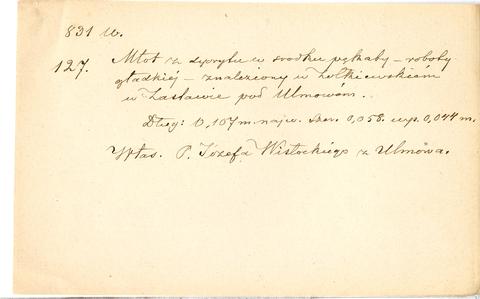 831 w.
127. Młot z dyorytu w środku pękaty – roboty
gładkiéj – znaleziony w Żółkiewskiem
w Zasławie pod Ulmowém..
Dług: 0,107 m. najw. Szer. 0,058. wys. 0,044 m.
Włas. P. Józefa Wisłockiego z Ulmowa.